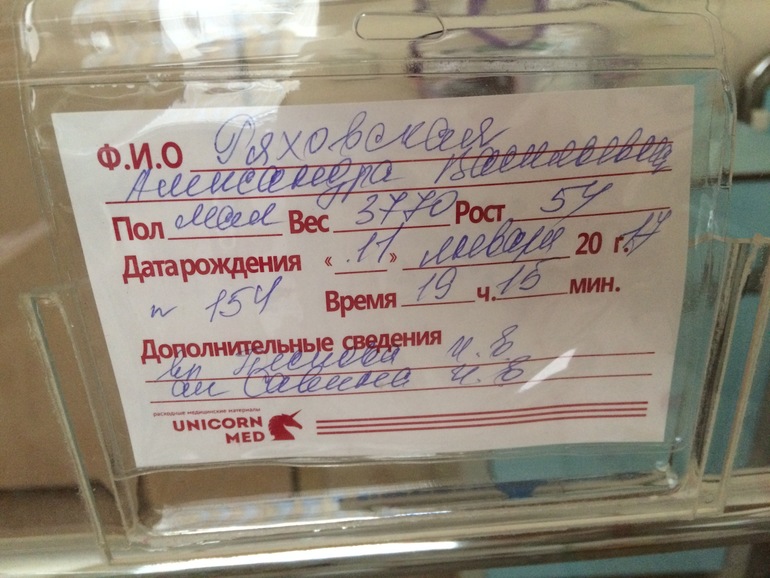 Ф.И.О Ряховская
Александра Васильевна
Пол мал Вес 3770 Рост 54
Дата рождения « 11 » января 20 17 г.
п 154 Время 19 ч. 15 мин.
Дополнительные сведения
вр
ак Савина И. В
расходные медицинские материалы
UNICORN
MED